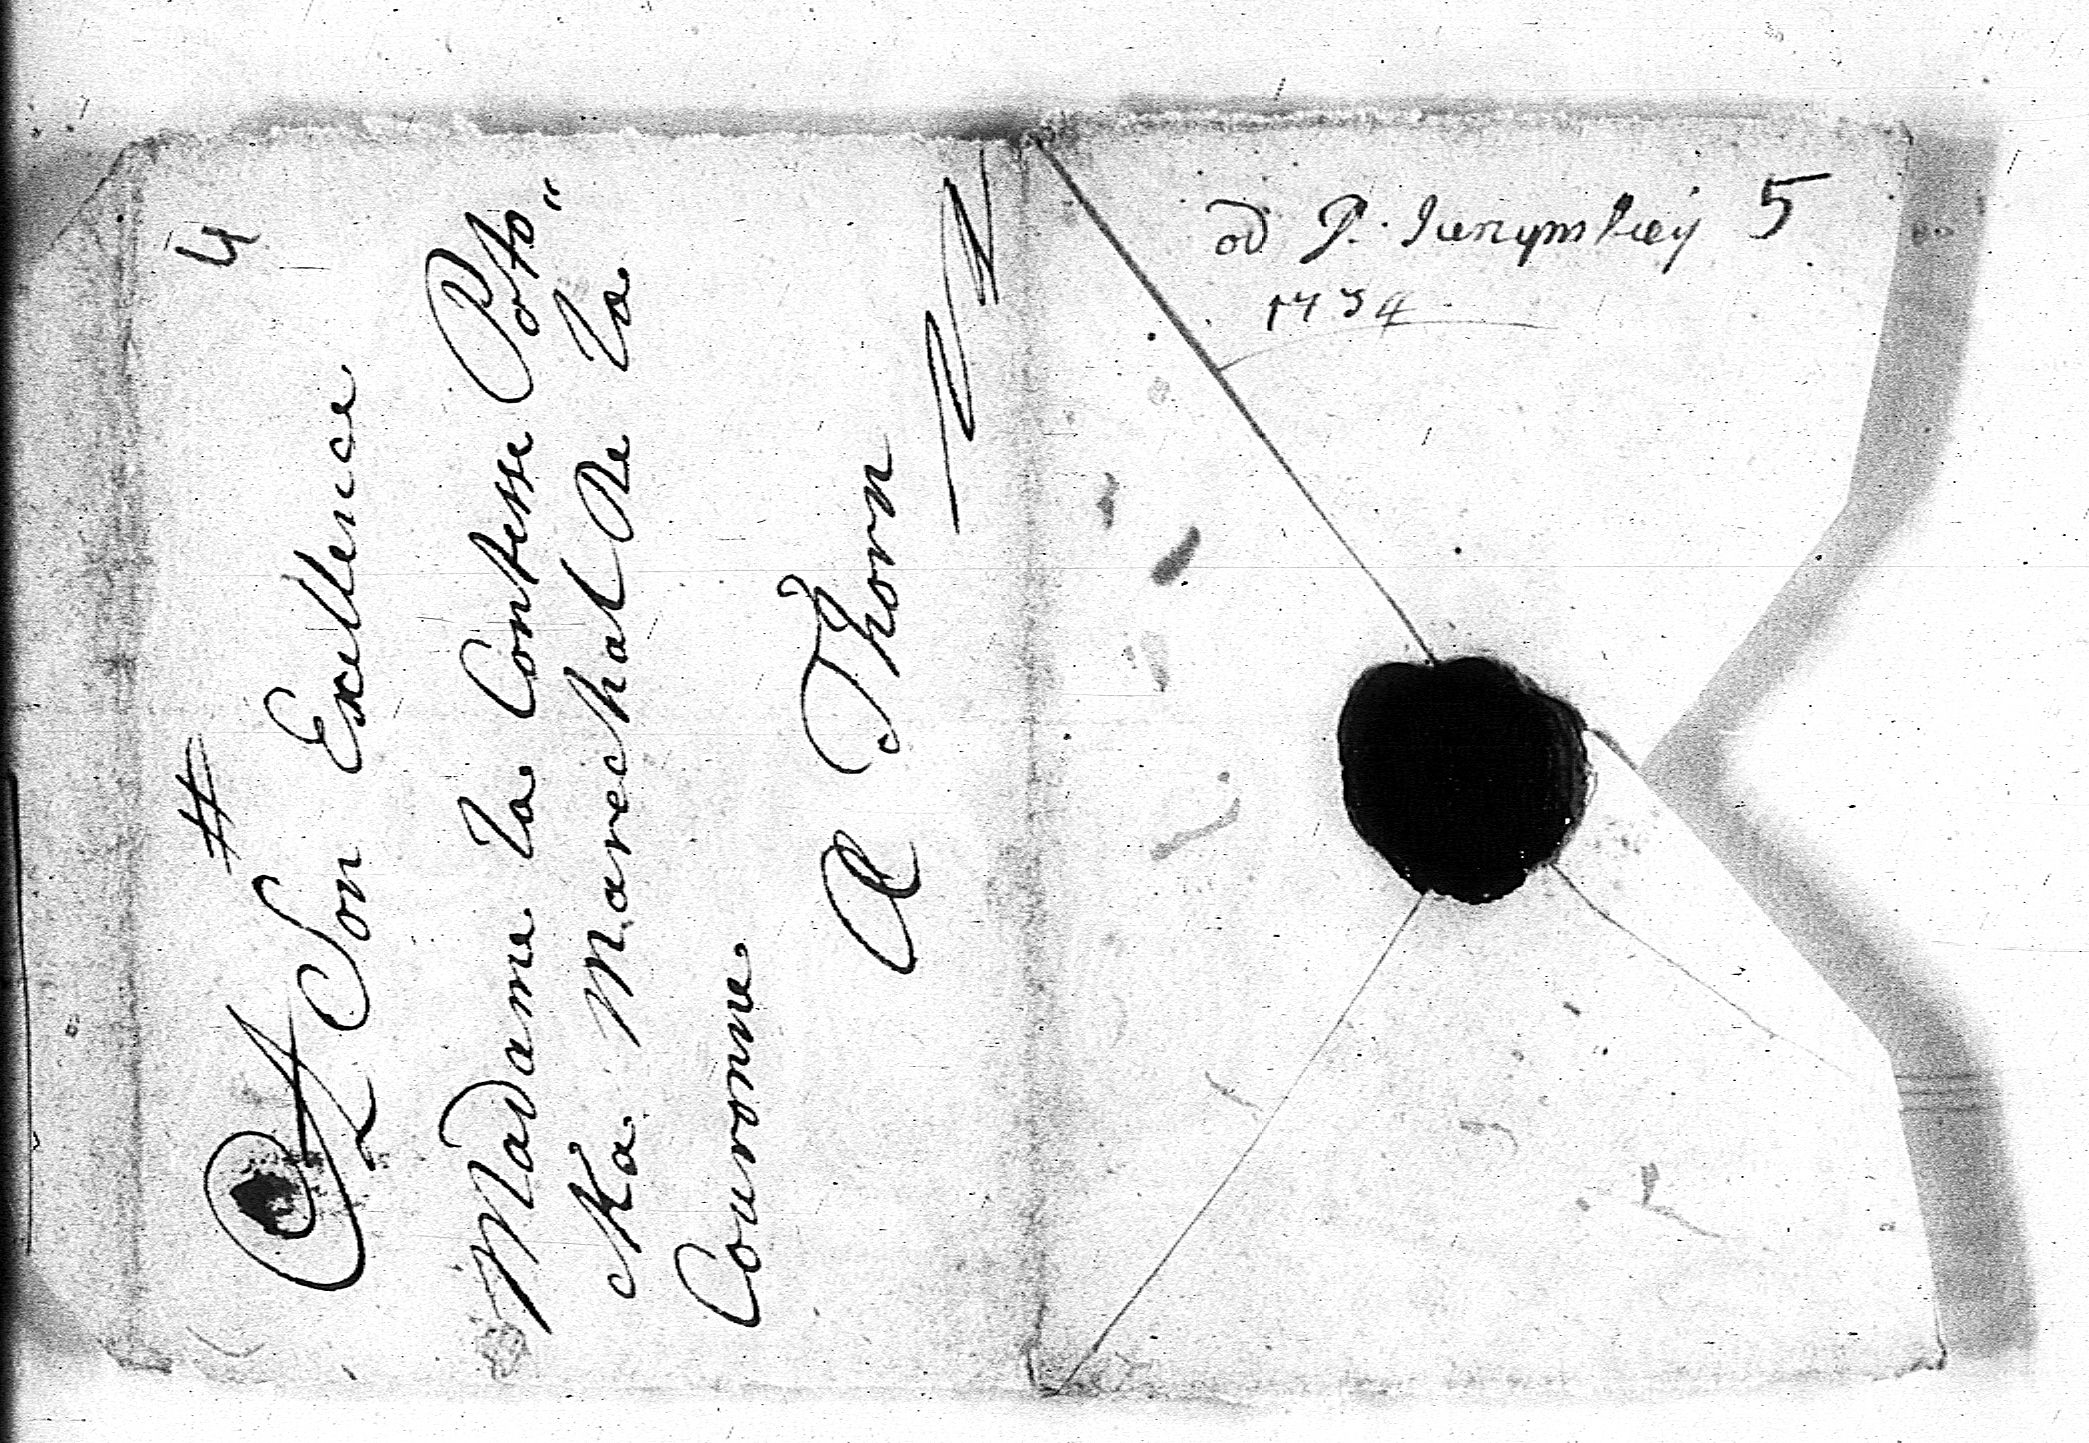 4
A Son Excellence
Madame la Contesse Poto„
cka. Marechal de la
Couronne.
A Thorn
od P. 5
1734